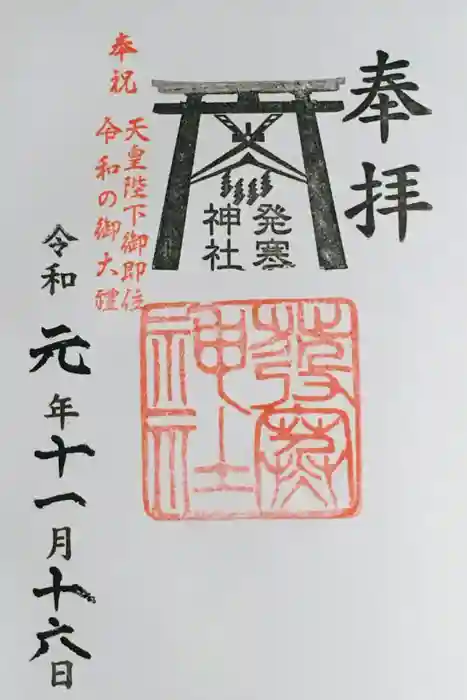 奉拝
発寒
神社
発寒
神社
奉祝
天皇陛下御即位
令和の御大礼
令和元年十一月十六日